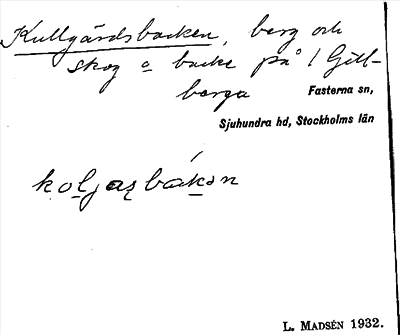 Kullgärdsbacken, berg och
skog o backe på 1 Gill-
berga
Fasterna sn,
Sjuhundra hd, Stockholms län
L. MADSÉN 1932.